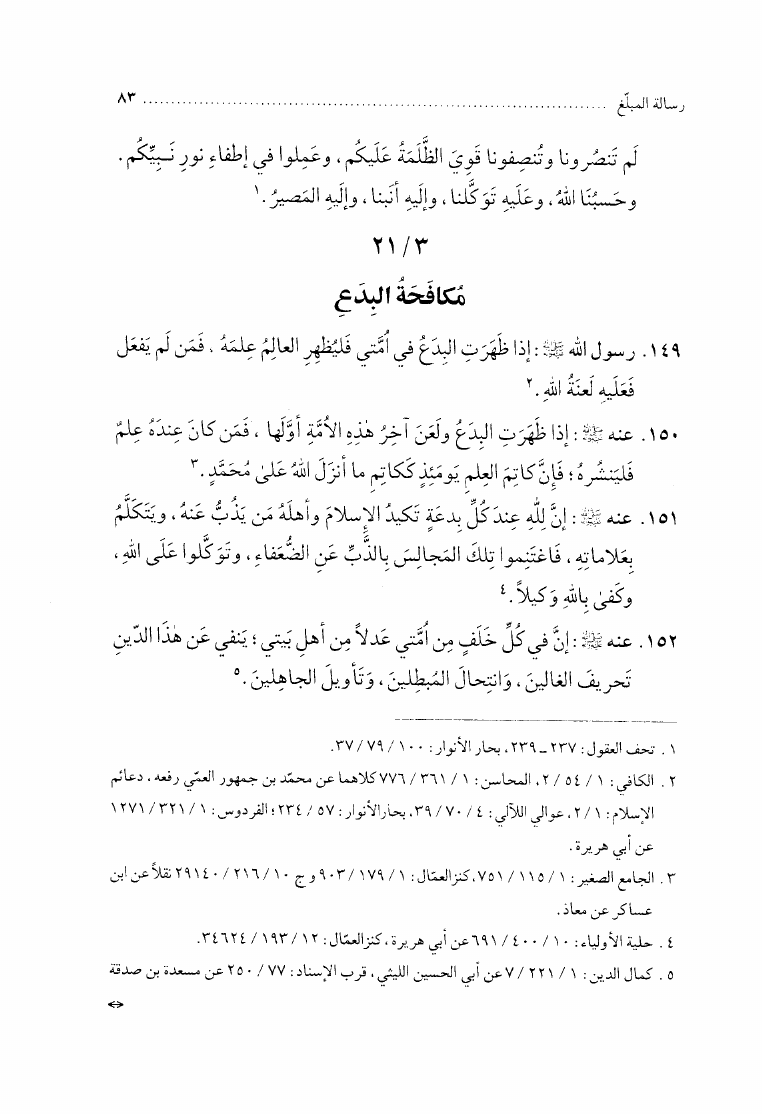 رسالة المبلّغ ........................................................................ ٨٣
لَم تَنصُرونا وتُنصِفونا قَوِيَ الظَّلَمَةُ عَلَيكُم ، وعَمِلوا في إطفاءِ نورِ نَـبِيِّكُم .
وحَسبُنَا اللهُ ، وعَلَيهِ تَوَكَّلنا ، وإلَيهِ أنَبنا ، وإلَيهِ المَصيرُ .١
٣ / ٢١
مُكافَحَةُ البِدَعِ
١٤٩. رسول الله ﷺ : إذا ظَهَرَتِ البِدَعُ في اُمَّتي فَليُظهِرِ العالِمُ عِلمَهُ ، فَمَن لَم يَفعَل
فَعَلَيهِ لَعنَةُ اللهِ .٢
١٥٠. عنه ﷺ : إذا ظَهَرَتِ البِدَعُ ولَعَنَ آخِرُ هٰذِهِ الاُمَّةِ أوَّلَها ، فَمَن كانَ عِندَهُ عِلمٌ
فَليَنشُرهُ ؛ فَإِنَّ كاتِمَ العِلمِ يَومَئِذٍ كَكاتِمِ ما أنزَلَ اللهُ عَلىٰ مُحَمَّدٍ .٣
١٥١. عنه ﷺ : إنَّ لِلّٰهِ عِندَ كُلِّ بِدعَةٍ تَكيدُ الإِسلامَ وأهلَهُ مَن يَذُبُّ عَنهُ ، ويَتَكَلَّمُ
بِعَلاماتِهِ ، فَاغتَنِموا تِلكَ المَجالِسَ بِالذَّبِّ عَنِ الضُّعَفاءِ ، وتَوَكَّلوا عَلَى اللهِ ،
وكَفىٰ بِاللهِ وَكيلاً .٤
١٥٢. عنه ﷺ : إنَّ في كُلِّ خَلَفٍ مِن اُمَّتي عَدلاً مِن أهلِ بَيتي ؛ يَنفي عَن هٰذَا الدّينِ
تَحريفَ الغالينَ ، وَانتِحالَ المُبطِلينَ ، وَتَأويلَ الجاهِلينَ .٥
١ . تحف العقول : ٢٣٧ ـ ٢٣٩، بحار الأنوار : ١٠٠ / ٧٩ / ٣٧.
٢ . الكافي : ١ / ٥٤ / ٢، المحاسن : ١ / ٣٦١ / ٧٧٦ كلاهما عن محمّد بن جمهور العمّي رفعه ، دعائم
الإسلام : ١ / ٢، عوالي اللآلي : ٤ / ٧٠ / ٣٩، بحار الأنوار : ٥٧ / ٢٣٤ ؛ الفردوس : ١ / ٣٢١ / ١٢٧١
عن أبي هريرة .
٣ . الجامع الصغير : ١ / ١١٥ / ٧٥١، كنز العمّال : ١ / ١٧٩ / ٩٠٣ و ج ١٠ / ٢١٦ / ٢٩١٤٠ نقلاً عن ابن
عساكر عن معاذ .
٤ . حلية الأولياء : ١٠ / ٤٠٠ / ٦٩١ عن أبي هريرة ، كنز العمّال : ١٢ / ١٩٣ / ٣٤٦٢٤.
٥ . كمال الدين : ١ / ٢٢١ / ٧ عن أبي الحسين الليثي ، قرب الإسناد : ٧٧ / ٢٥٠ عن مسعدة بن صدقة
⇔